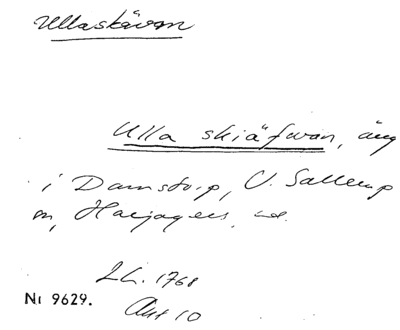 Ullaskävan
Ulla skiäfwan, äng
i Damstorp, V. Sallerup
sn, Harjagers hd.
LL. 1768
Akt 10
Nr 9629.